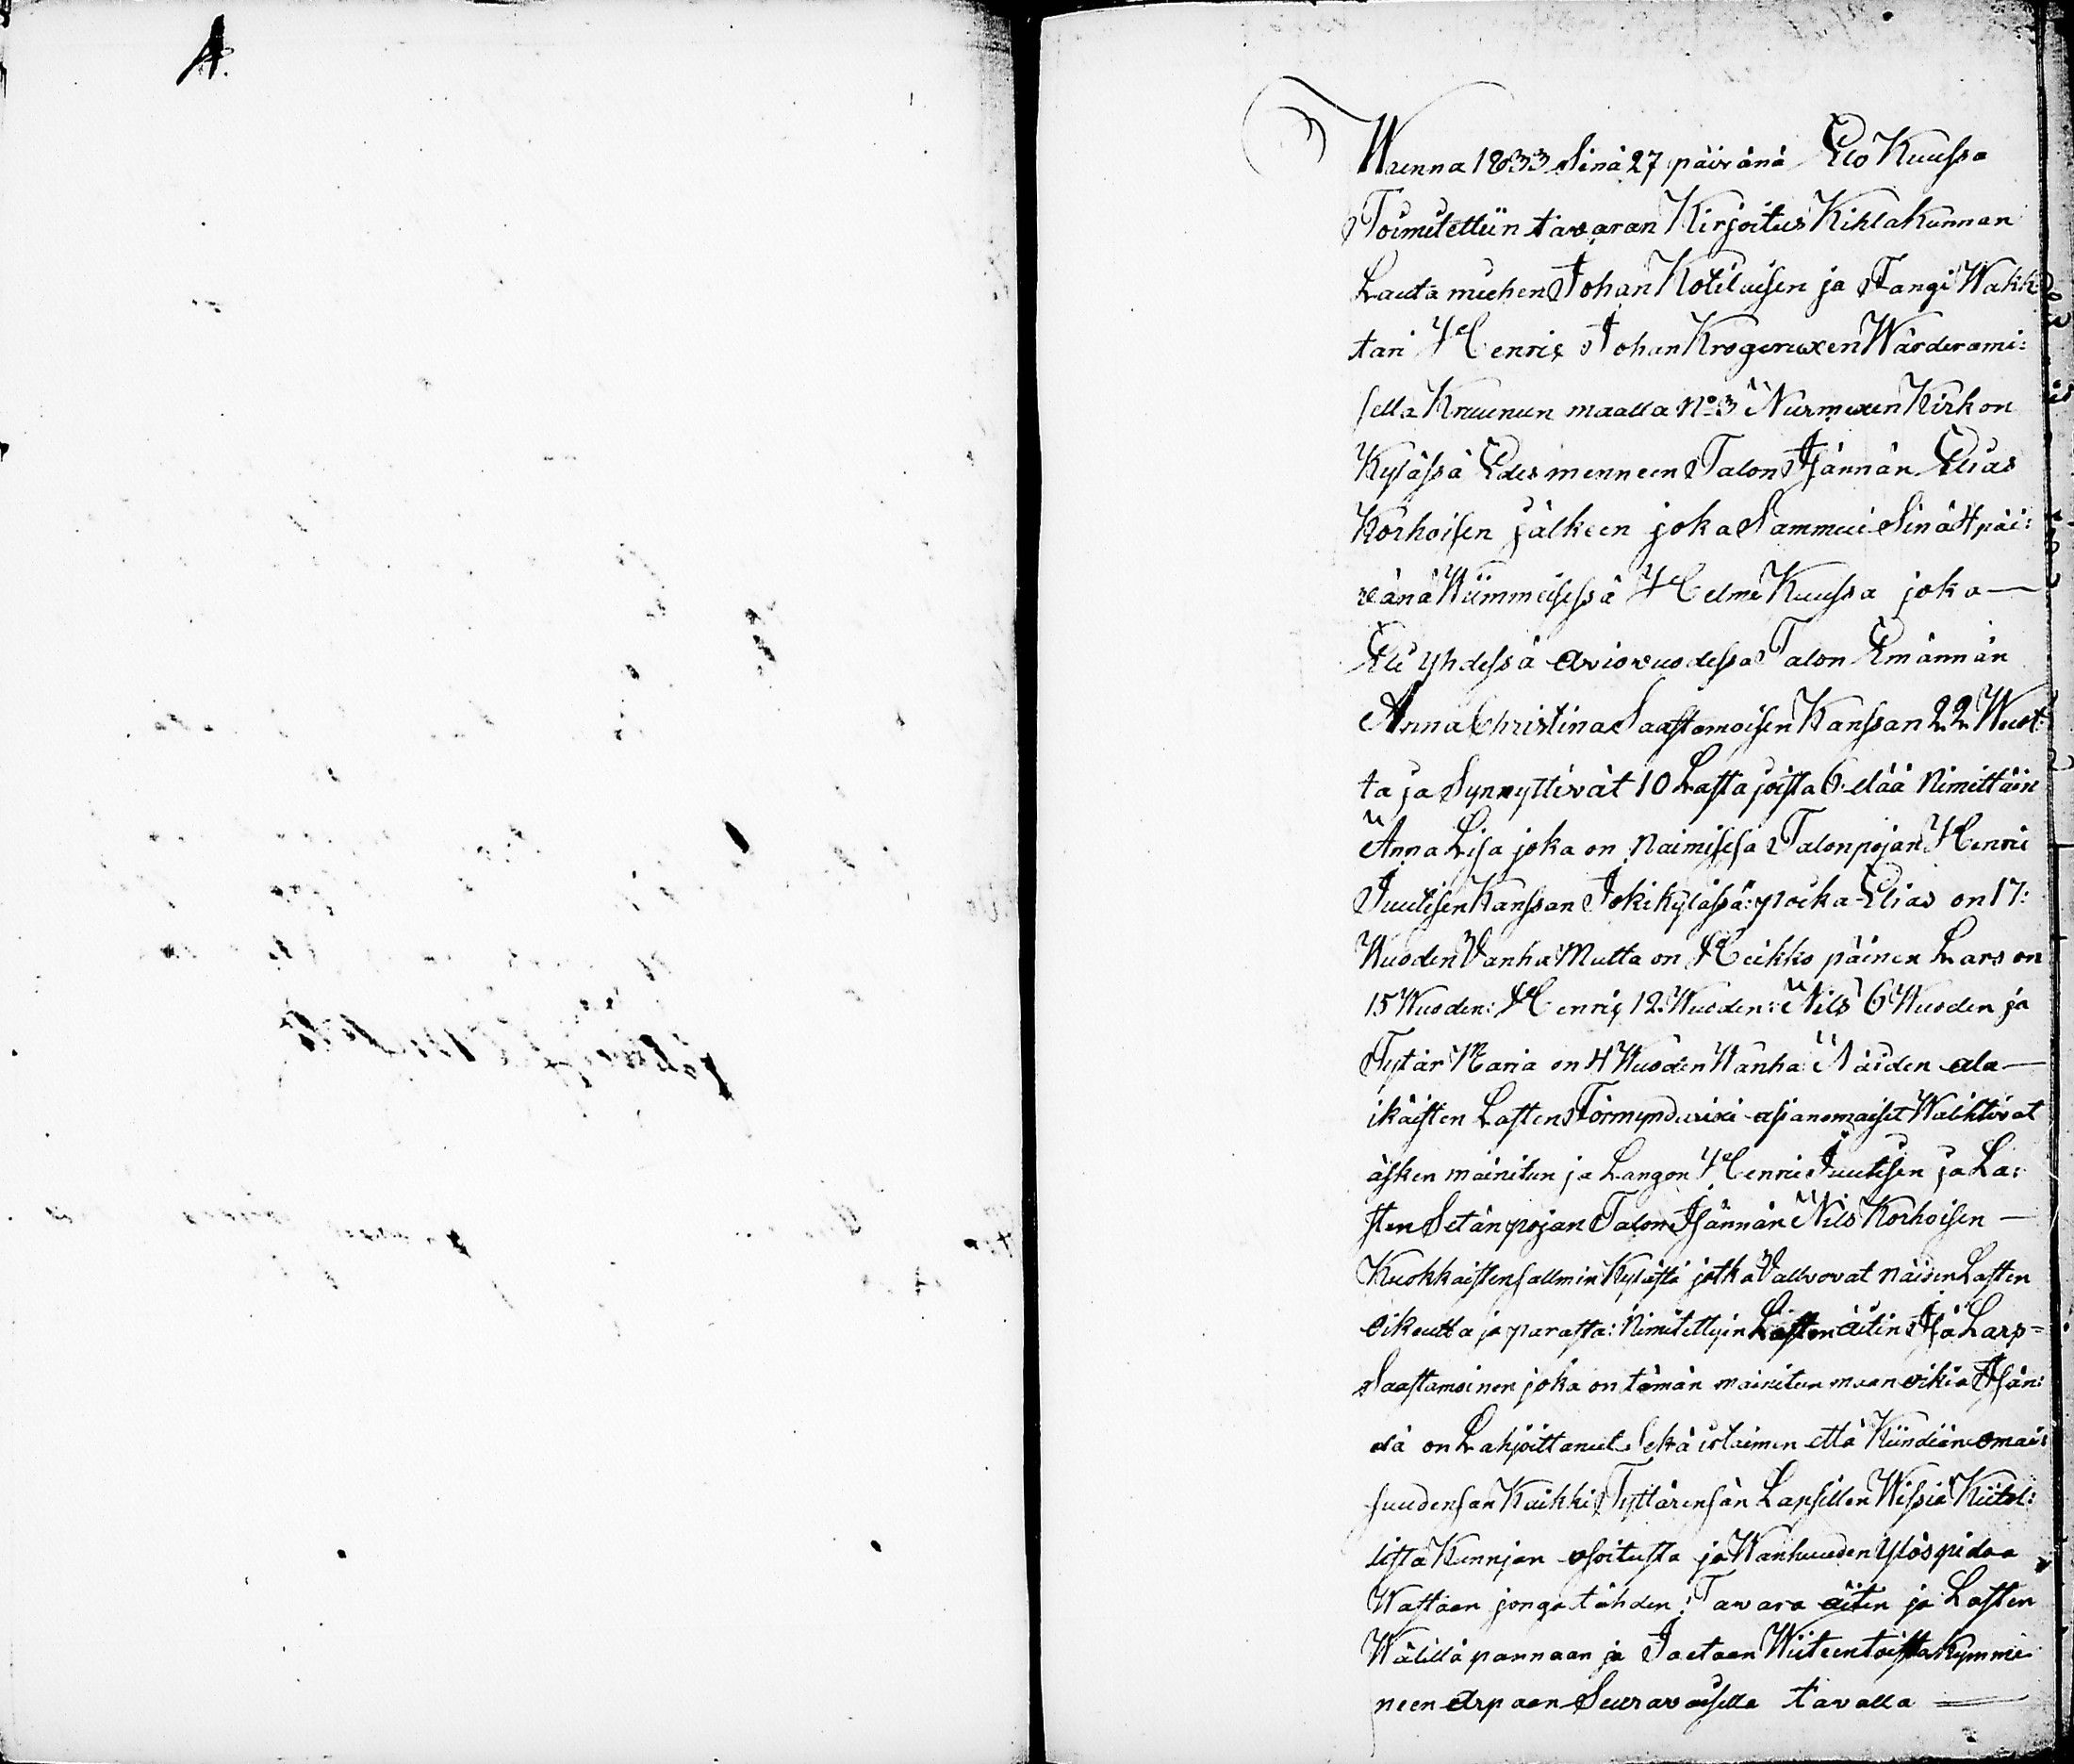 A.
Wuonna 1833 Sinä 27 päivänä Elo Kuussa
Toimitettiin tavaran Kirjoitus Kihlakunnan
Lauta miehen Johan Kotilaisen ja Fangi Wakh
tari Henric Johan Krogeruxen Wärderami:
sella Kruunun maalla No 3 Nurmexen Kirkon
Kylässä Edes menneen Talon Isännän Elias
Korhoisen jälkeen joka Sammui Sinä 4 päi:
vänä Wiimmeisessä Helme Kuussa joka —
Eli yhdessä aviovuodessa Talon Emännän
Anna Christina Saastamoisen Kanssan 22 Wuot:
ta ja Synnyttivät 10 Lasta joista 6 elää Nimittäin
Anna Lisa joka on Naimisesa Talonpojan Henric
Juutisen Kanssan Jokikylässä: poika Elias on 17:
Wuoden Vanha Mutta on Heikko päinen Lars on
15 Wuoden: Henric 12: Wuoden: Nils 6 Wuoden ja
Tytär Maria on 4 Wuoden Wanha Näiden ala —
ikäisten Lasten Förmyndärixi asianomaiset Walihtivat
äsken mainitun ja Langon Henric Juutisen ja La:
sten Setänpojan Talon Isännän Nils Korhoisen —
Kuohkaistensallmin Kylästä jotka Vallvovat näiden Lasten
oikeutta ja parasta: Nimitettyin Lasten äitin Isä Lars =
Saastamoinen joka on tämän mainitun maan oikia Isän:
dä on Lahjoittanut Sekä irtaimen että Kiindiän omai:
suudensan Kaikki Tyttärensän Lapsillen Wissiä Kiitol:
lista Kunnjan osoitusta ja Wanhuuden Ylöspidoa
Wastaan jonga tähden: Tavara äitin ja Lasten
Wälillä pannaan ja Jaetaan Wiiteentoistakymme
neen Arpaan Seuravaisella tavalla —